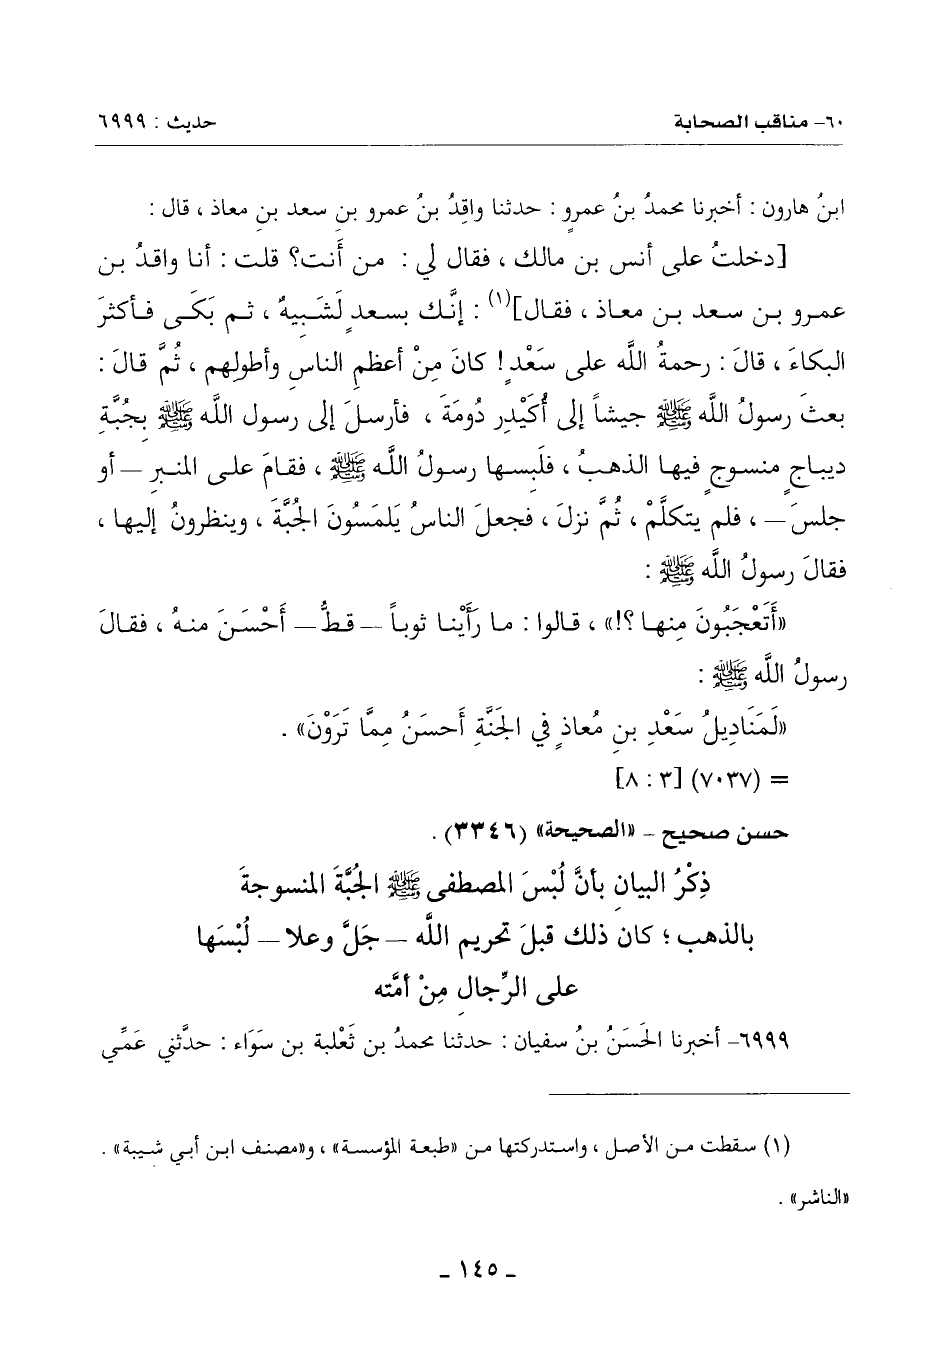 ٦٠- مناقب الصحابة حديث : ٦٩٩٩
ابنُ هارون : أخبرنا محمدُ بنُ عمرٍو : حدثنا واقِدُ بنُ عمرو بنِ سعد بنِ معاذ ، قال :
[دخلتُ على أنس بن مالك ، فقال لي : من أَنت؟ قلت : أنا واقدُ بن
عمرو بن سعد بن معاذ ، فقال](١) : إنَّك بسعدٍ لَشَبِيهٌ ، ثم بَكَى فأكثرَ
البكاءَ ، قالَ : رحمةُ اللَّه على سَعْدٍ! كانَ مِنْ أعظمِ الناسِ وأطولِهم ، ثُمَّ قالَ :
بعثَ رسولُ اللَّه ﷺ جيشاً إلى أُكَيْدِر دُومَةَ ، فأرسلَ إلى رسول اللَّه ﷺ بجُبَّةِ
ديباجٍ منسوجٍ فيها الذهبُ ، فلَبِسها رسولُ اللَّه ﷺ ، فقامَ على المنبرِ – أو
جلسَ – ، فلم يتكلَّمْ ، ثُمَّ نزلَ ، فجعلَ الناسُ يَلمَسُونَ الجُبَّةَ ، وينظرونُ إليها ،
فقالَ رسولُ اللَّه ﷺ :
«أَتَعْجَبُونَ مِنها ؟!» ، قالوا : ما رَأَيْنا ثوباً – قطُّ – أَحْسَنَ منهُ ، فقالَ
رسولُ اللَّه ﷺ :
«لَمَنَادِيلُ سَعْدِ بنِ مُعاذٍ في الجَنَّةِ أَحسَنُ مِمَّا تَرَوْنَ» .
= (٧٠٣٧) [٣ : ٨]
حسن صحيح - «الصحيحة» (٣٣٤٦) .
ذِكْرُ البيانِ بأنَّ لُبْسَ المصطفى ﷺ الجُبَّةَ المنسوجةَ
بالذهب ؛ كان ذلك قبلَ تحريم اللَّه – جَلَّ وعلا – لُبْسَها
على الرِّجالِ مِنْ أمَّته
٦٩٩٩- أخبرنا الحَسَنُ بنُ سفيان : حدثنا محمدُ بن ثَعْلبة بن سَوَاء : حدَّثني عَمِّي
(١) سقطت من الأصل ، واستدركتها من «طبعة المؤسسة» ، و«مصنف ابن أبي شيبة» .
«الناشر» .
- ١٤٥ -